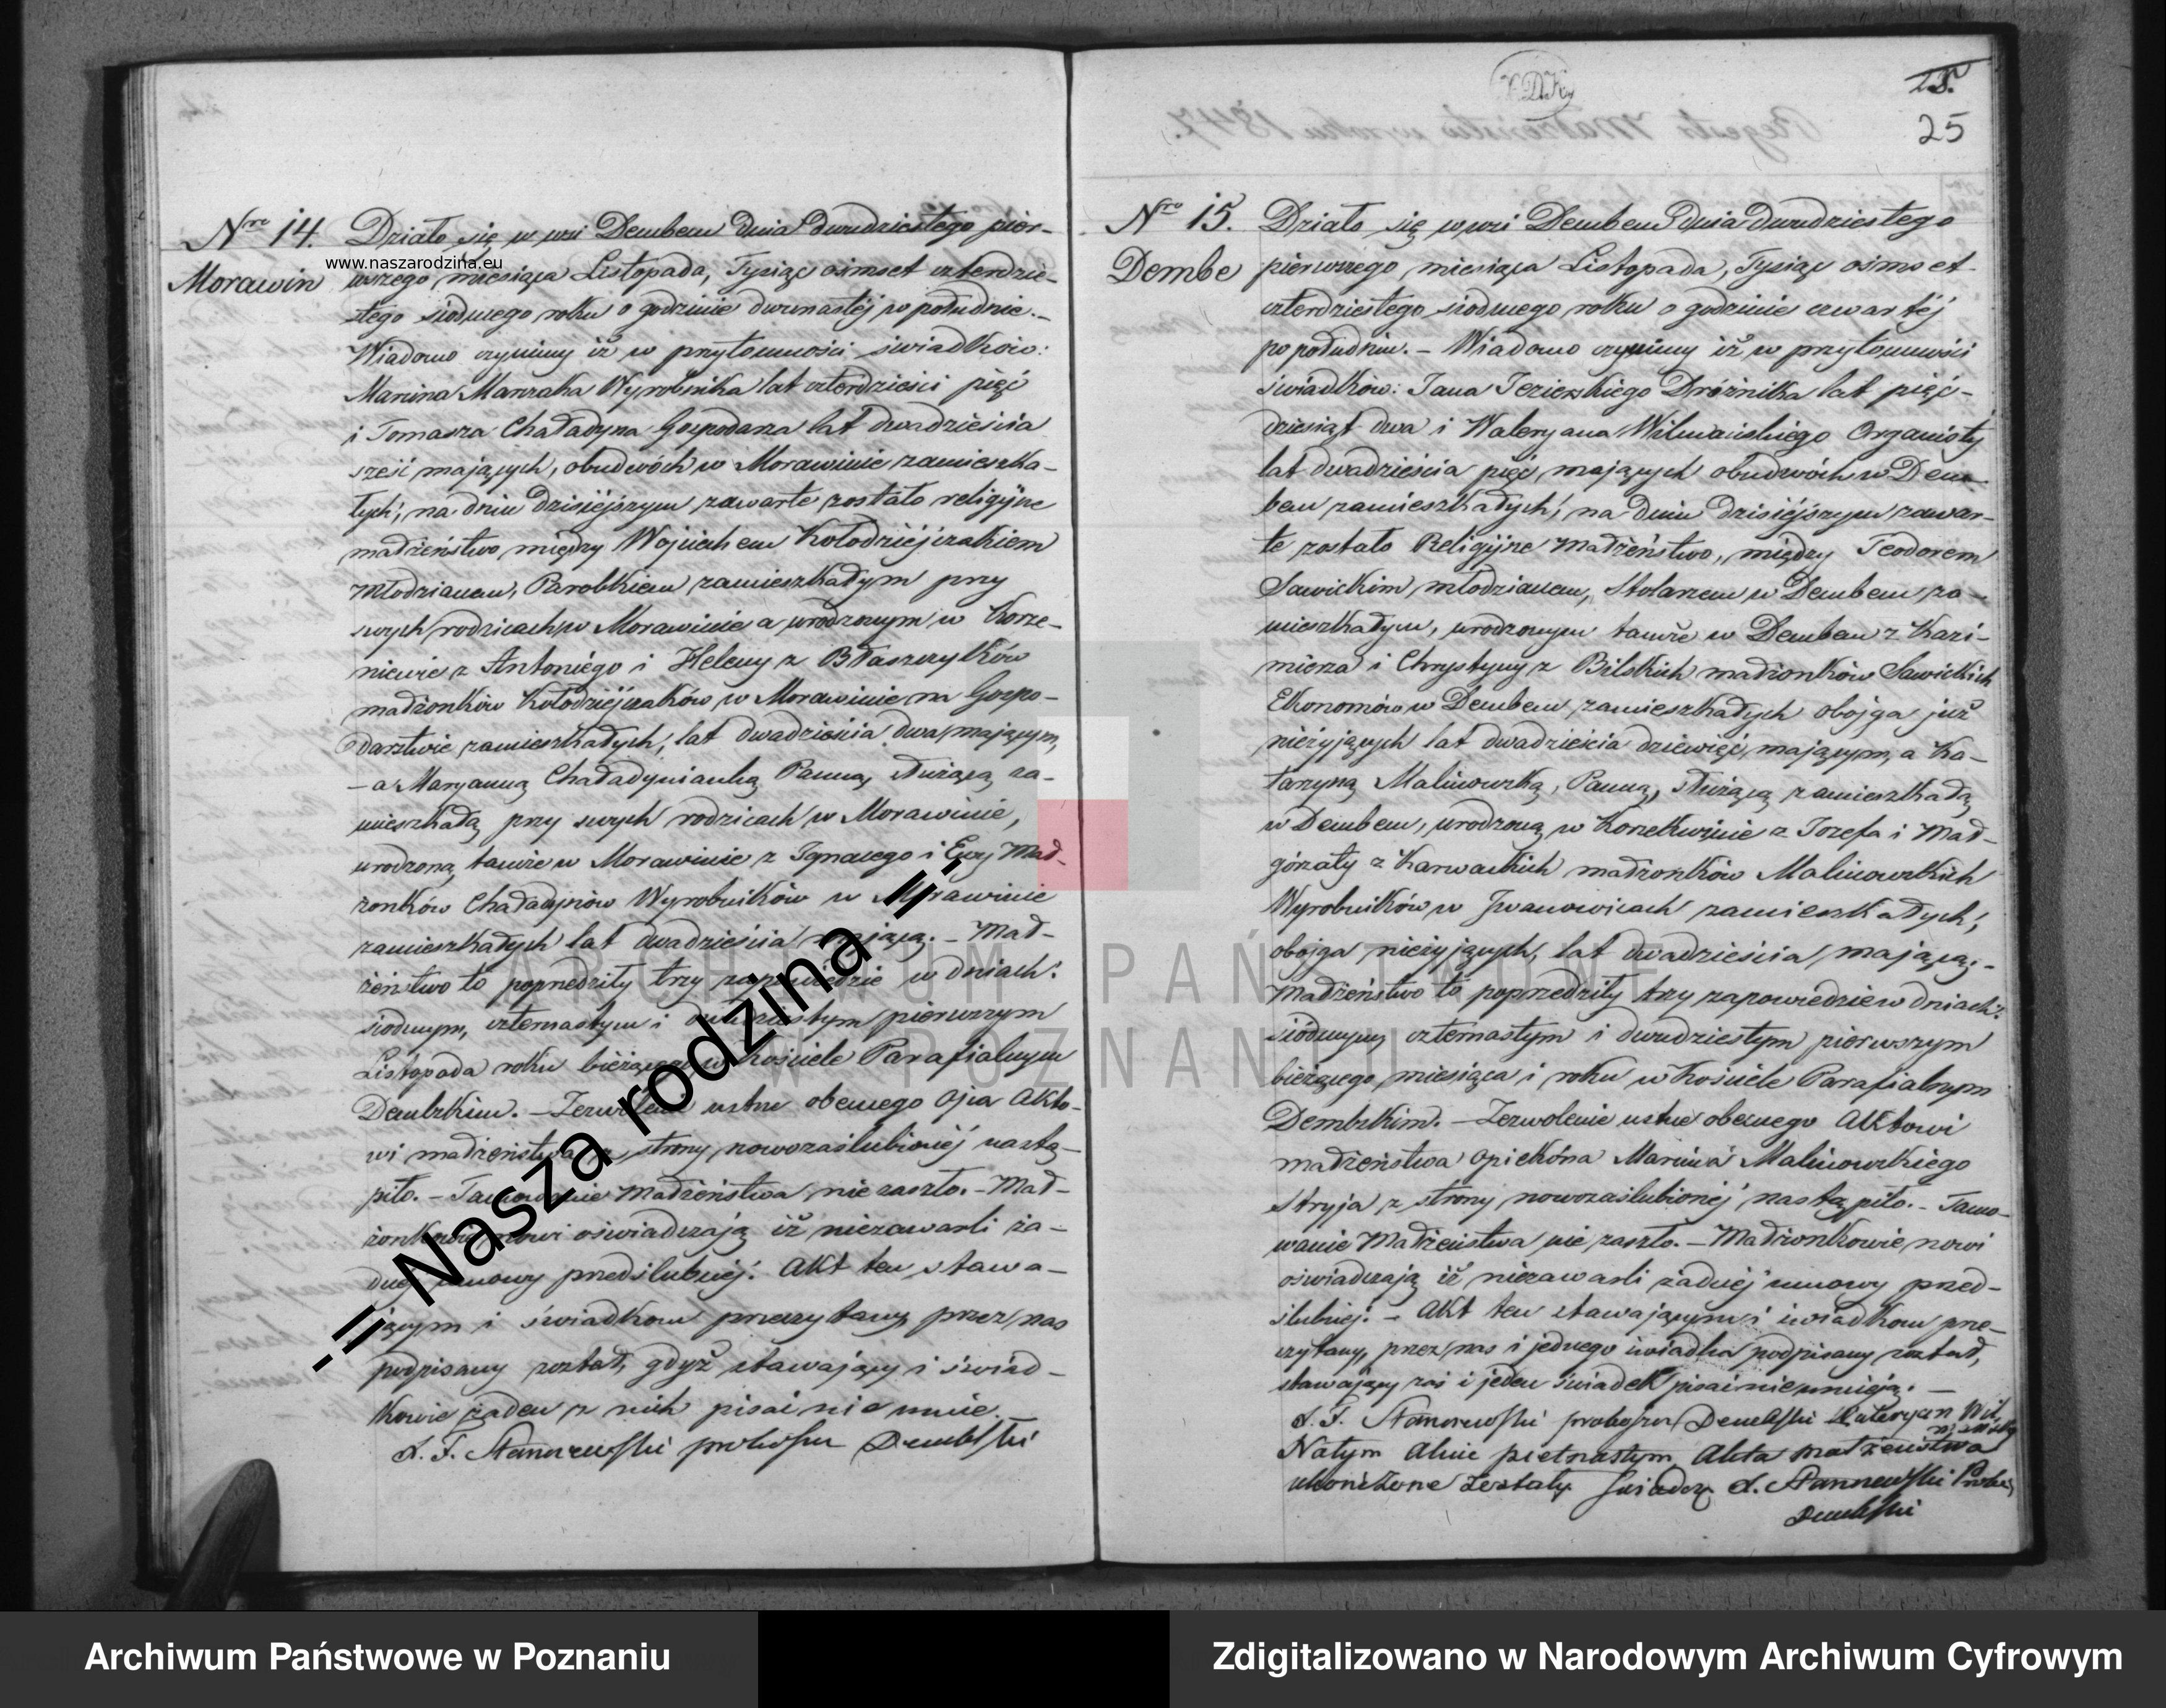 Nro 14.
Morawin
Działo się w wsi Dembem dnia dwudziestego pier-
wszego miesiąca Listopada, Tysiąc ośmset czterdzie-
stego siódmego roku o godzinie dwunastéj w południe. -
Wiadomo czynimy iż w przytomności świadków:
Marcina Marczaka Wyrobnika lat czterdzieści pięć
i Tomasza Chaładyna Gospodarza lat dwadzieścia
sześć mających, obudwóch w Morawinie zamieszka-
łych; na dniu dzisiéjszym zawarte zostało religijne
małżeństwo między Wojciechem Kołodziéjczakiem
Młodzianem, Parobkiem zamieszkałym przy
swych rodzicach w Morawinie a urodzonym w Korze-
niewie z Antoniégo i Heleny z Błaszczyków
małżonków Kołodziéjczaków w Morawinie na Gospo-
darstwie zamieszkałych; lat dwadzieścia dwa mającym,
- a Maryanną Chaładynianką Panną, służącą za-
mieszkałą przy swych rodzicach w Morawinie,
urodzoną tamże w Morawinie z Ignacego i Ewy Mał-
żonków Chaładynów Wyrobników w Morawinie
zamieszkałych lat dwadzieścia mającą. - Mał-
żeństwo to poprzedziły trzy zapowiedzie w dniach:
siódmym, czternastym i dwudziestym pierwszym
Listopada roku bieżącego w Kościele Parafialnym
Dembskim. - Zezwolenie ustne obecnego Ojca Akto-
wi małżeństwa z strony nowozaślubionéj nastą-
piło. - Tamowanie Małżeństwa nie zaszło. - Mał-
żonkowie nowi oświadczają iż niezawarli ża-
dnej umowy przedślubnéj. Akt ten stawa-
jącym i świadkom przeczytany przez nas
podpisany został, gdyż stawający i świad-
kowie żaden z nich pisać nie umie.
X. F. Stanczewski proboszcz Dembski
25
Nro 15.
Dembe
Działo się w wsi Dembem dnia dwudziestego
pierwszego miesiąca Listopada, Tysiąc ośmset
czterdziestego siódmego roku o godzinie czwartéj
po południu. - Wiadomo czynimy iż w przytomności
świadków: Jana Jezierskiego Dróżnika lat pięć-
dziesiąt dwa i Waleryana Wilmańskiego Organisty
lat dwadzieścia pięć mających obudwóch w Dem-
bem zamieszkałych; na dniu dzisiéjszym zawar-
te zostało Religijne Małżeństwo, między Teodorem
Sawickim młodzianem, Stolarzem w Dembem za-
mieszkałym, urodzonym tamże w Dembem z Kazi-
mierza i Chrystyny z Bilskich małżonków Sawickich
Ekonomów w Dembem zamieszkałych obojga już
nieżyjących lat dwadzieścia dziewięć mającym, a Ka-
tarzyną Malinowską, Panną, służącą zamieszkałą
w Dembem, urodzoną w Korzekwinie z Jozefa i Mał-
gorzaty z Karwackich małżonków Malinowskich
Wyrobników w Iwanowicach zamieszkałych;
obojga nieżyjących, lat dwadzieścia mającą. -
Małżeństwo to poprzedziły trzy zapowiedzie w dniach:
siódmym, czternastym i dwudziestym pierwszym
bieżącego miesiąca i roku w Kościele Parafialnym
Dembskim. - Zezwolenie ustne obecnego Aktowi
małżeństwa opiekóna Marcina Malinowskiego
Stryja z strony nowozaślubionéj nastąpiło. - Tamo-
wanie Małżeństwa nie zaszło. - Małżonkowie nowi
oświadczają iż niezawarli żadnéj umowy przed-
ślubnéj. - Akt ten stawającym i świadkom prze-
czytany, przez nas i jednego świadka podpisany został,
stawający zaś i jeden świadek pisać nieumieją. -
X. F. Stanczewski proboszcz Dembski Waleryan Wil
mański
Na tym Akcie pietnastym Akta małżeństwa
ukończone zostały świadczę X. Stanczewski Probo
Dembski
www.naszarodzina.eu
-=Nasza rodzina=-
ARCHIWUM PAŃSTWOWE
W POZNANIU
Archiwum Państwowe w Poznaniu
Zdigitalizowano w Narodowym Archiwum Cyfrowym